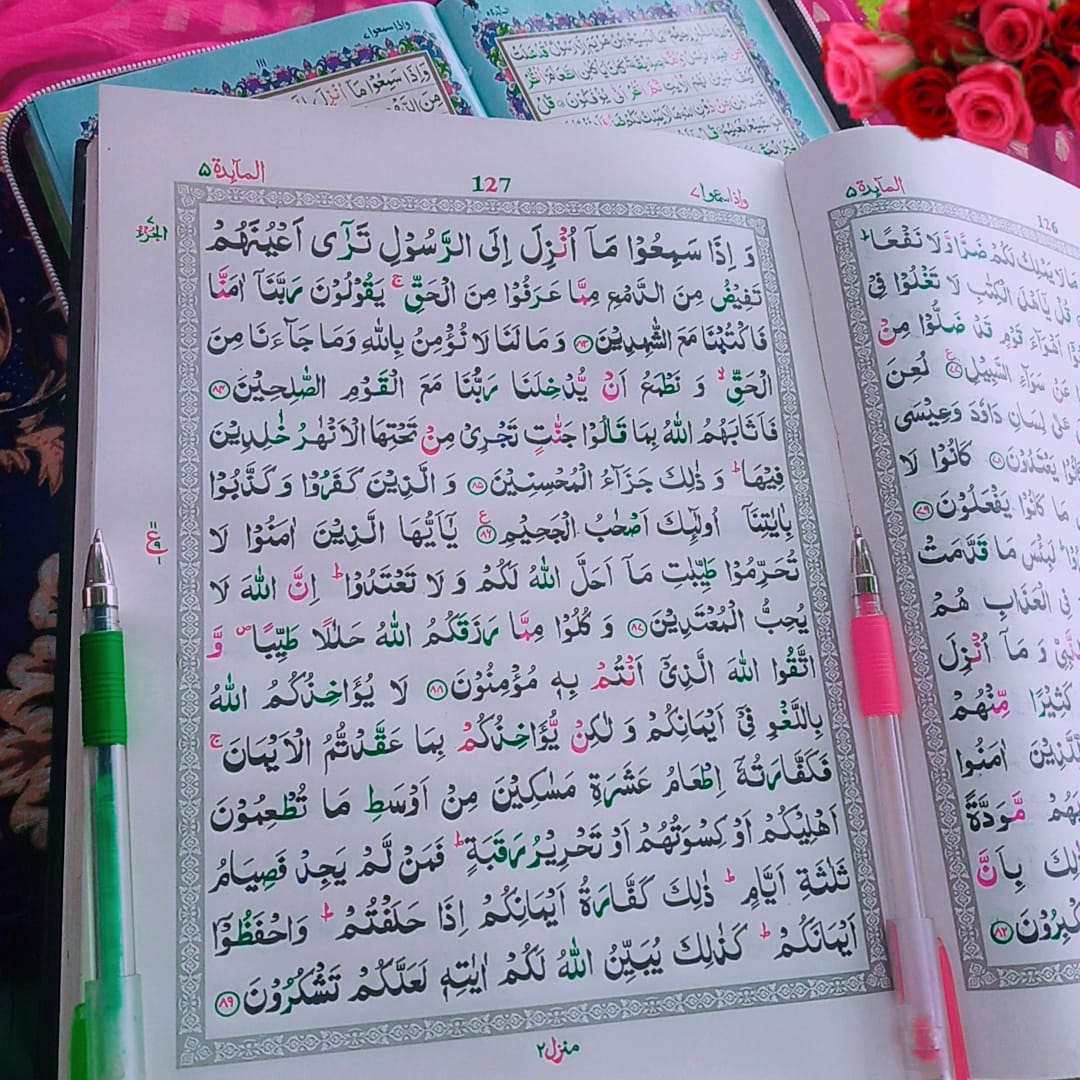 المآئدة ۵
127
واذا سمعوا ۷
وَ اِذَا سَمِعُوْا مَاۤ اُنْزِلَ اِلَى الرَّسُوْلِ تَرٰۤى اَعْیُنَهُمْ
تَفِیْضُ مِنَ الدَّمْعِ مِمَّا عَرَفُوْا مِنَ الْحَقِّ ۚ یَقُوْلُوْنَ رَبَّنَاۤ اٰمَنَّا
فَاكْتُبْنَا مَعَ الشّٰهِدِیْنَ ۸۳ وَ مَا لَنَا لَا نُؤْمِنُ بِاللّٰهِ وَمَا جَآءَنَا مِنَ
الْحَقِّ ۙ وَ نَطْمَعُ اَنْ یُّدْخِلَنَا رَبُّنَا مَعَ الْقَوْمِ الصّٰلِحِیْنَ ۸۴
فَاَثَابَهُمُ اللّٰهُ بِمَا قَالُوْا جَنّٰتٍ تَجْرِیْ مِنْ تَحْتِهَا الْاَنْهٰرُ خٰلِدِیْنَ
فِیْهَا ؕ وَ ذٰلِكَ جَزَآءُ الْمُحْسِنِیْنَ ۸۵ وَ الَّذِیْنَ كَفَرُوْا وَ كَذَّبُوْا
بِاٰیٰتِنَاۤ اُولٰٓىِٕكَ اَصْحٰبُ الْجَحِیْمِ ۸۶ یٰۤاَیُّهَا الَّذِیْنَ اٰمَنُوْا لَا
تُحَرِّمُوْا طَیِّبٰتِ مَاۤ اَحَلَّ اللّٰهُ لَكُمْ وَ لَا تَعْتَدُوْا ؕ اِنَّ اللّٰهَ لَا
یُحِبُّ الْمُعْتَدِیْنَ ۸۷ وَ كُلُوْا مِمَّا رَزَقَكُمُ اللّٰهُ حَلٰلًا طَیِّبًا ۪ وَّ
اتَّقُوا اللّٰهَ الَّذِیْۤ اَنْتُمْ بِهٖ مُؤْمِنُوْنَ ۸۸ لَا یُؤَاخِذُكُمُ اللّٰهُ
بِاللَّغْوِ فِیْۤ اَیْمَانِكُمْ وَ لٰكِنْ یُّؤَاخِذُكُمْ بِمَا عَقَّدْتُّمُ الْاَیْمَانَ ۚ
فَكَفَّارَتُهٗۤ اِطْعَامُ عَشَرَةِ مَسٰكِیْنَ مِنْ اَوْسَطِ مَا تُطْعِمُوْنَ
اَهْلِیْكُمْ اَوْ كِسْوَتُهُمْ اَوْ تَحْرِیْرُ رَقَبَةٍ ؕ فَمَنْ لَّمْ یَجِدْ فَصِیَامُ
ثَلٰثَةِ اَیَّامٍ ؕ ذٰلِكَ كَفَّارَةُ اَیْمَانِكُمْ اِذَا حَلَفْتُمْ ؕ وَاحْفَظُوْۤا
اَیْمَانَكُمْ ؕ كَذٰلِكَ یُبَیِّنُ اللّٰهُ لَكُمْ اٰیٰتِهٖ لَعَلَّكُمْ تَشْكُرُوْنَ ۸۹
منزل ۲
المآئدة ۵
126
مَا لَا یَمْلِكُ لَكُمْ ضَرًّا وَّ لَا نَفْعًا ؕ
قُلْ یٰۤاَهْلَ الْكِتٰبِ لَا تَغْلُوْا فِیْ
اَهْوَآءَ قَوْمٍ قَدْ ضَلُّوْا مِنْ
عَنْ سَوَآءِ السَّبِیْلِ ۷۷ لُعِنَ
عَلٰى لِسَانِ دَاوٗدَ وَعِیْسَى
یَعْتَدُوْنَ ۷۸ كَانُوْا لَا
مَا كَانُوْا یَفْعَلُوْنَ ۷۹
لَبِئْسَ مَا قَدَّمَتْ
فِی الْعَذَابِ هُمْ
وَ مَاۤ اُنْزِلَ
كَثِیْرًا مِّنْهُمْ
اٰمَنُوا
مَّوَدَّةً
بِاَنَّ
۸۲